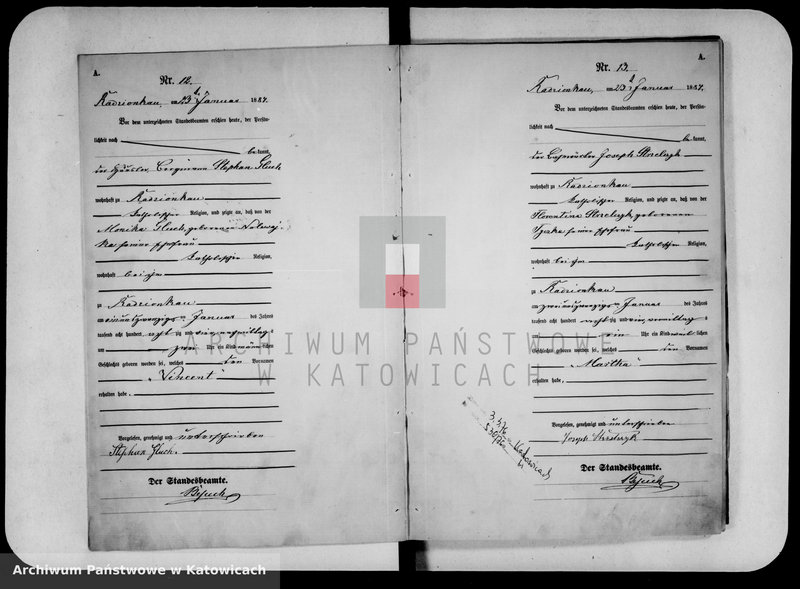 A.
Nr. 12.
Radzionkau, am 23. Januar 1884.
Vor dem unterzeichneten Standesbeamten erschien heute, der Persön-
lichkeit nach
bekannt,
der Häusler, Bergmann Stephan Gluch
wohnhaft zu Radzionkau
katholischer Religion, und zeigte an, daß von der
Monika Gluch, geborenen
seiner Ehefrau
katholischer Religion,
wohnhaft bei ihm
zu Radzionkau
am Januar des Jahres
tausend acht hundert acht zig und vier nachmittags
um zwei Uhr ein Kind männlichen
Geschlechts geboren worden sei, welches den Vornamen
"Vincent"
erhalten habe.
Vorgelesen, genehmigt und unterschrieben
Stephan Gluch.
Der Standesbeamte.
A.
Nr. 13.
Radzionkau, am 23. Januar 1884.
Vor dem unterzeichneten Standesbeamten erschien heute, der Persön-
lichkeit nach
bekannt,
der Joseph
wohnhaft zu Radzionkau
katholischer Religion, und zeigte an, daß von der
Florentina geborenen
seiner Ehefrau
katholischer Religion,
wohnhaft bei ihm
zu Radzionkau
am zwei und zwanzigsten Januar des Jahres
tausend acht hundert acht zig und vier vormittags
um ein Uhr ein Kind weiblichen
Geschlechts geboren worden sei, welches den Vornamen
"Martha"
erhalten habe.
Vorgelesen, genehmigt und unterschrieben
Joseph
Der Standesbeamte.
Katowicach
ARCHIWUM PAŃSTWOWE
W KATOWICACH
Archiwum Państwowe w Katowicach